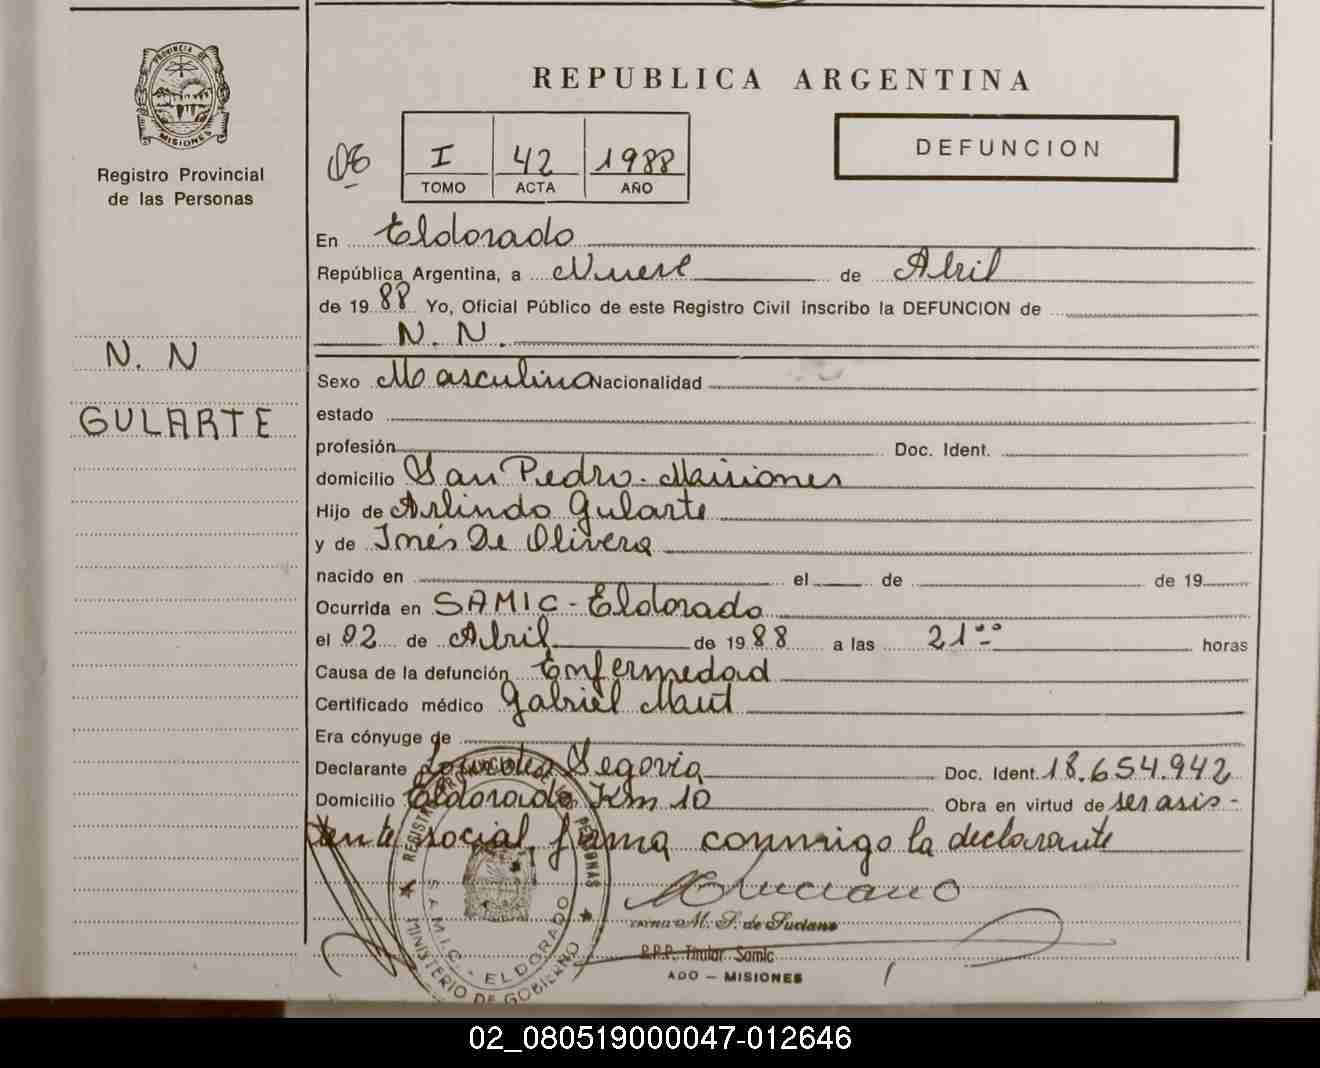 PROVINCIA DE
MISIONES
Registro Provincial
de las Personas
REPUBLICA ARGENTINA
DEFUNCION
06
I 42 1988
TOMO ACTA AÑO
En Eldorado
República Argentina, a Nueve de Abril
de 1988 Yo, Oficial Público de este Registro Civil inscribo la DEFUNCION de
N. N.
N. N
GULARTE
Sexo Masculino Nacionalidad
estado
profesión Doc. Ident.
domicilio San Pedro - Misiones
Hijo de Arlindo Gularte
y de Inés De Olivera
nacido en el de de 19
Ocurrida en SAMIC - Eldorado
el 02 de Abril de 1988 a las 21 00 horas
Causa de la defunción Enfermedad
Certificado médico Gabriel Maut
Era cónyuge de
Declarante Lourdes Segovia Doc. Ident. 18.654.942
Domicilio Eldorado Km 10 Obra en virtud de ser asis-
tente social, firma conmigo la declarante
REGISTRO PROVINCIAL DE LAS PERSONAS
S.A.M.I.C. - ELDORADO
MINISTERIO DE GOBIERNO
M. S. de Luciano
R.P.P. Titular Samic
ADO - MISIONES
02_080519000047-012646